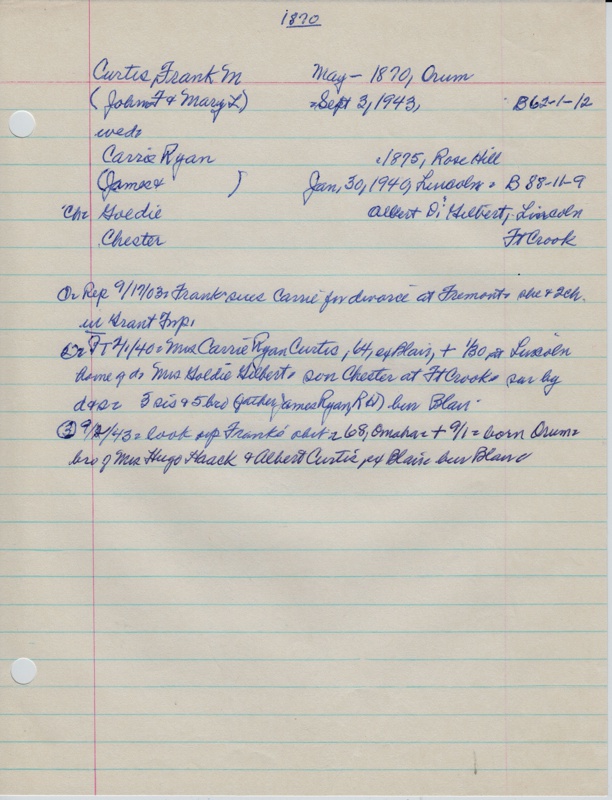 1870
Curtis, Frank M May - 1870, Orum
(John F & Mary L) Sept 3, 1943, B62-1-12
wed:
Carrie Ryan c1875, Rose Hill
(James & ) Jan, 30, 1940, Lincoln B 88-11-9
Ch: Goldie Albert D. Gilbert, Lincoln
Chester Ft Crook
① Rep 9/17/03: Frank sues Carrie for divorce at Fremont she & 2ch.
in Grant Twp.
② PT 2/1/40 = Mrs Carrie Ryan Curtis, 64, ex Blair, + 1/30 at Lincoln
home of d. Mrs Goldie Gilbert son Chester at Ft Crook sur by
d & s = 3 sis & 5 bro (father James Ryan, RH) bur Blair
③ 9/2/43 = look up Frank's obit = 68, Omaha = + 9/1 = born Orum =
bro of Mrs Hugo Haack & Albert Curtis, ex Blair = bur Blair